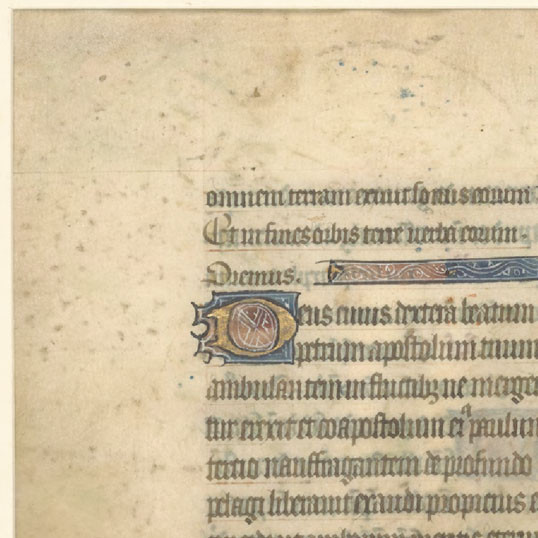 omnem terram exiuit sonus eorum
Et in fines orbis terre uerba eorum
Oremus.
Deus cuius dextera beatum
petrum apostolum tuum
ambulantem in fluctibz ne merge
tur erexit et coapostolum eiꝰ paulum
tertio naufragantem de profundo
pelagi liberauit exaudi propicius